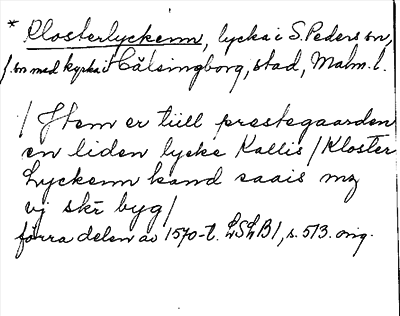 * Klosterlyckenn, lycka i S. Peders sn,
f. sn med kyrka i Hälsingborg, stad, Malm. l.
/ Jtem er tiill prestegaarden
en liden lycke Kallis / Kloster
Lyckenn kand saais mz
vj skr byg /
förra delen av 1570-t. LSLB1, s. 513. orig.